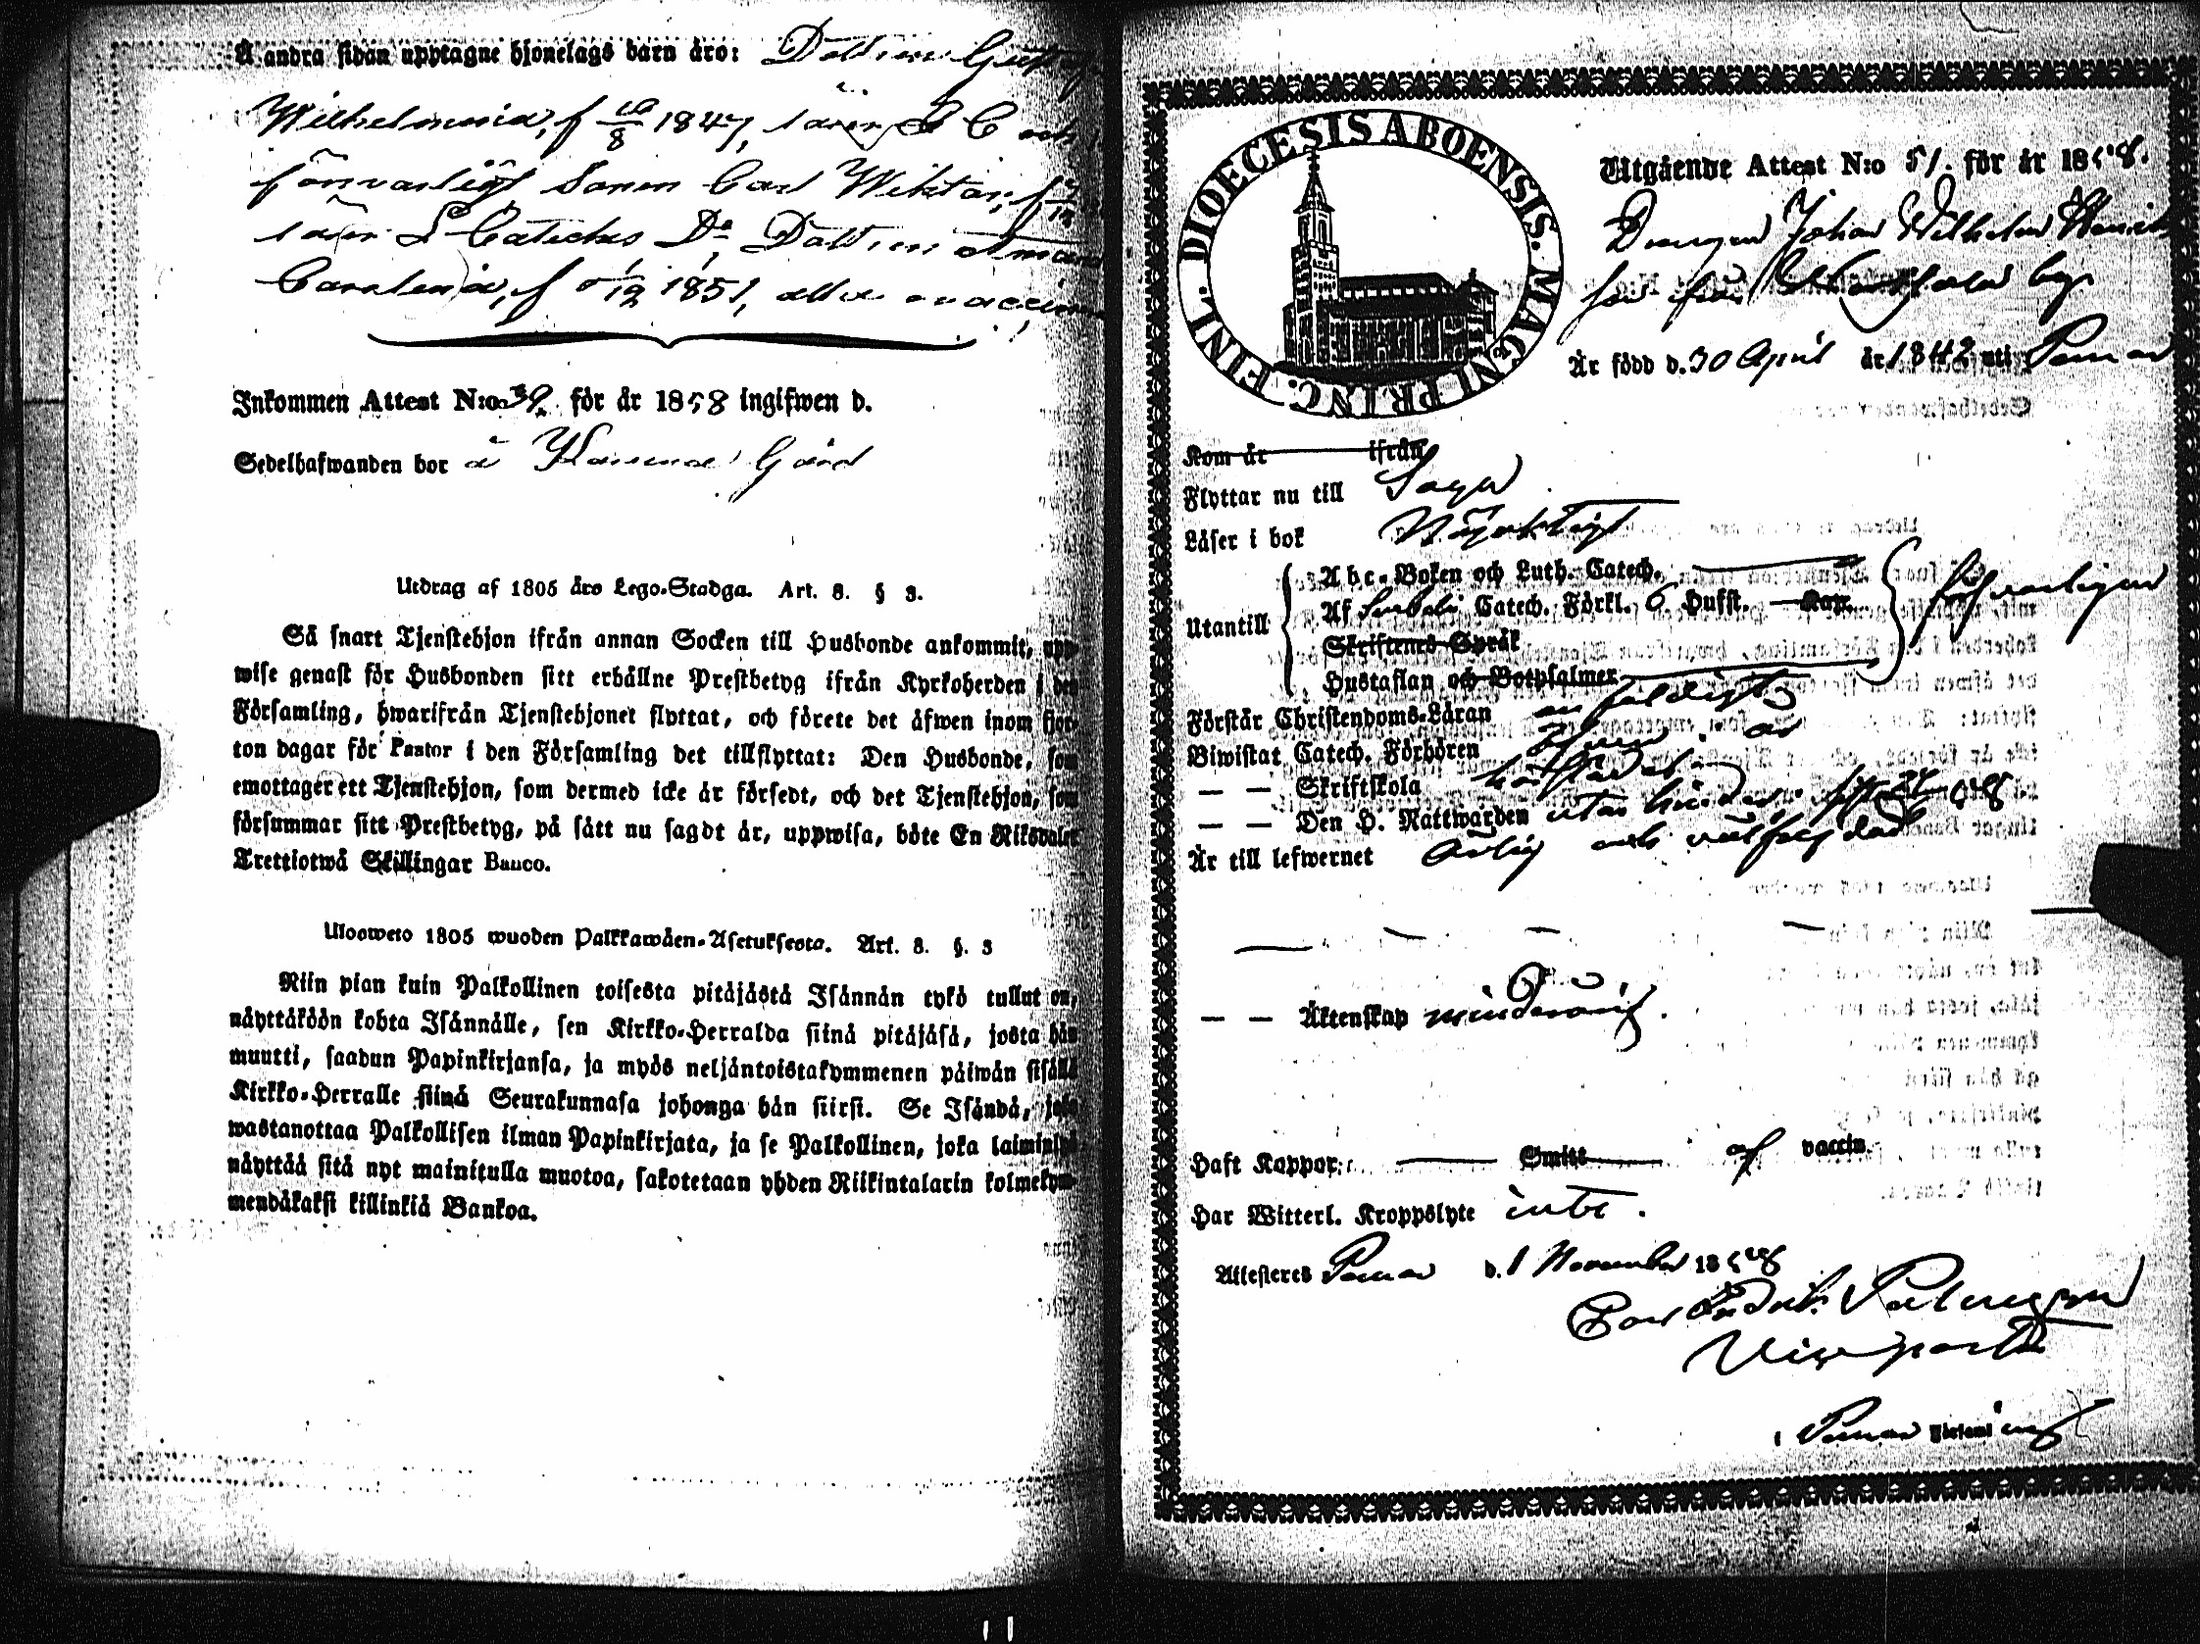 Å andra sidan upptagne hjonelags barn äro: Dottren
Wilhelmina, f 1847, läser L C och
försvarligt Sonen Carl Wiktor, f
läser L Cateches, Do Dottren
Carolina, f 1851, alla vaccin
Inkommen Attest N:o 39 för år 1858 ingifwen d.
Sedelhafwanden bor å Gård
Utdrag af 1805 års Lego-Stadga. Art. 8. § 3.
Så snart Tjenstehjon ifrån annan Socken till Husbonde ankommit, upp-
wise genast för Husbonden sitt erhållne Prestbetyg ifrån Kyrkoherden i den
Församling, hwarifrån Tjenstehjonet flyttat, och förete det äfwen inom fjor-
ton dagar för Pastor i den Församling det tillflyttat: Den Husbonde, som
emottager ett Tjenstehjon, som dermed icke är försedt, och det Tjenstehjon, som
försummar sitt Prestbetyg, på sätt nu sagdt är, uppwisa, böte En Riksdaler
Trettiotwå Skillingar Banco.
Ulosweto 1805 wuoden Palkkawäen-Asetuksesta. Art. 8. §. 3
Niin pian kuin Palkollinen toisesta pitäjästä Isännän tykö tullut on,
näyttäköön kohta Isännälle, sen Kirkko-Herralda siinä pitäjäsä, josta hän
muutti, saadun Papinkirjansa, ja myös neljäntoistakymmenen päiwän sisällä
Kirkko-Herralle siinä Seurakunnasa johonga hän siirsi. Se Isändä, joka
wastanottaa Palkollisen ilman Papinkirjata, ja se Palkollinen, joka laiminlyö
näyttää sitä nyt mainitulla muotoa, sakotetaan yhden Riikintalarin kolmekym-
mendäkaksi killinkiä Bankoa.
DIOECESIS ABOENSIS. MAGNI PRINC. FINL.
Utgående Attest N:o 51. för år 1858.
Drengen Johan Wilhelm
son från by
Är född d. 30 April år 1842 uti Pemar
Kom år ifrån
Flyttar nu till Sagu
Läser i bok Nöjaktigt
Utantill
Abc-Boken och Luth. Catech.
Af Svebelii Catech. Förkl. 6 Hufst. Kap.
Skriftenes Språk
Hustaflan och Botpsalmer
försvarligen
Förstår Christendoms-Läran enfaldigt
Biwistat Catech. Förhören
— — Skriftskola
— — Den H. Nattwarden utan hinder.
Är till lefwernet ärlig och välfrejdad
— — Äktenskap minderårig.
Haft Koppor: Smitt af vaccin.
Har Witterl. Kroppslyte inte.
Attesteres Pemar d. 1 November 1858
Carl Fredrik Palmgren
Vice pastor
i Pemar Försam ing